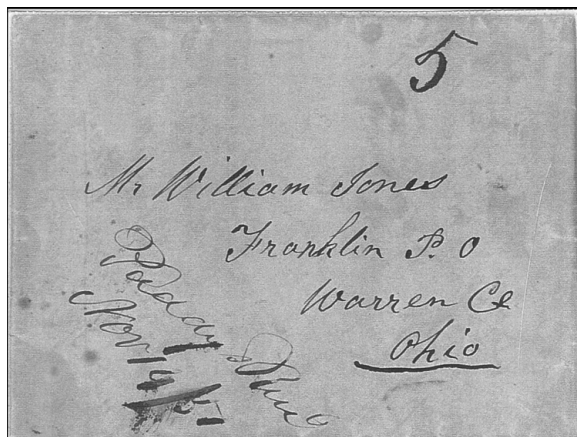 5
Mr William Jones
Franklin P. O
Warren Co
Ohio
Nov 19